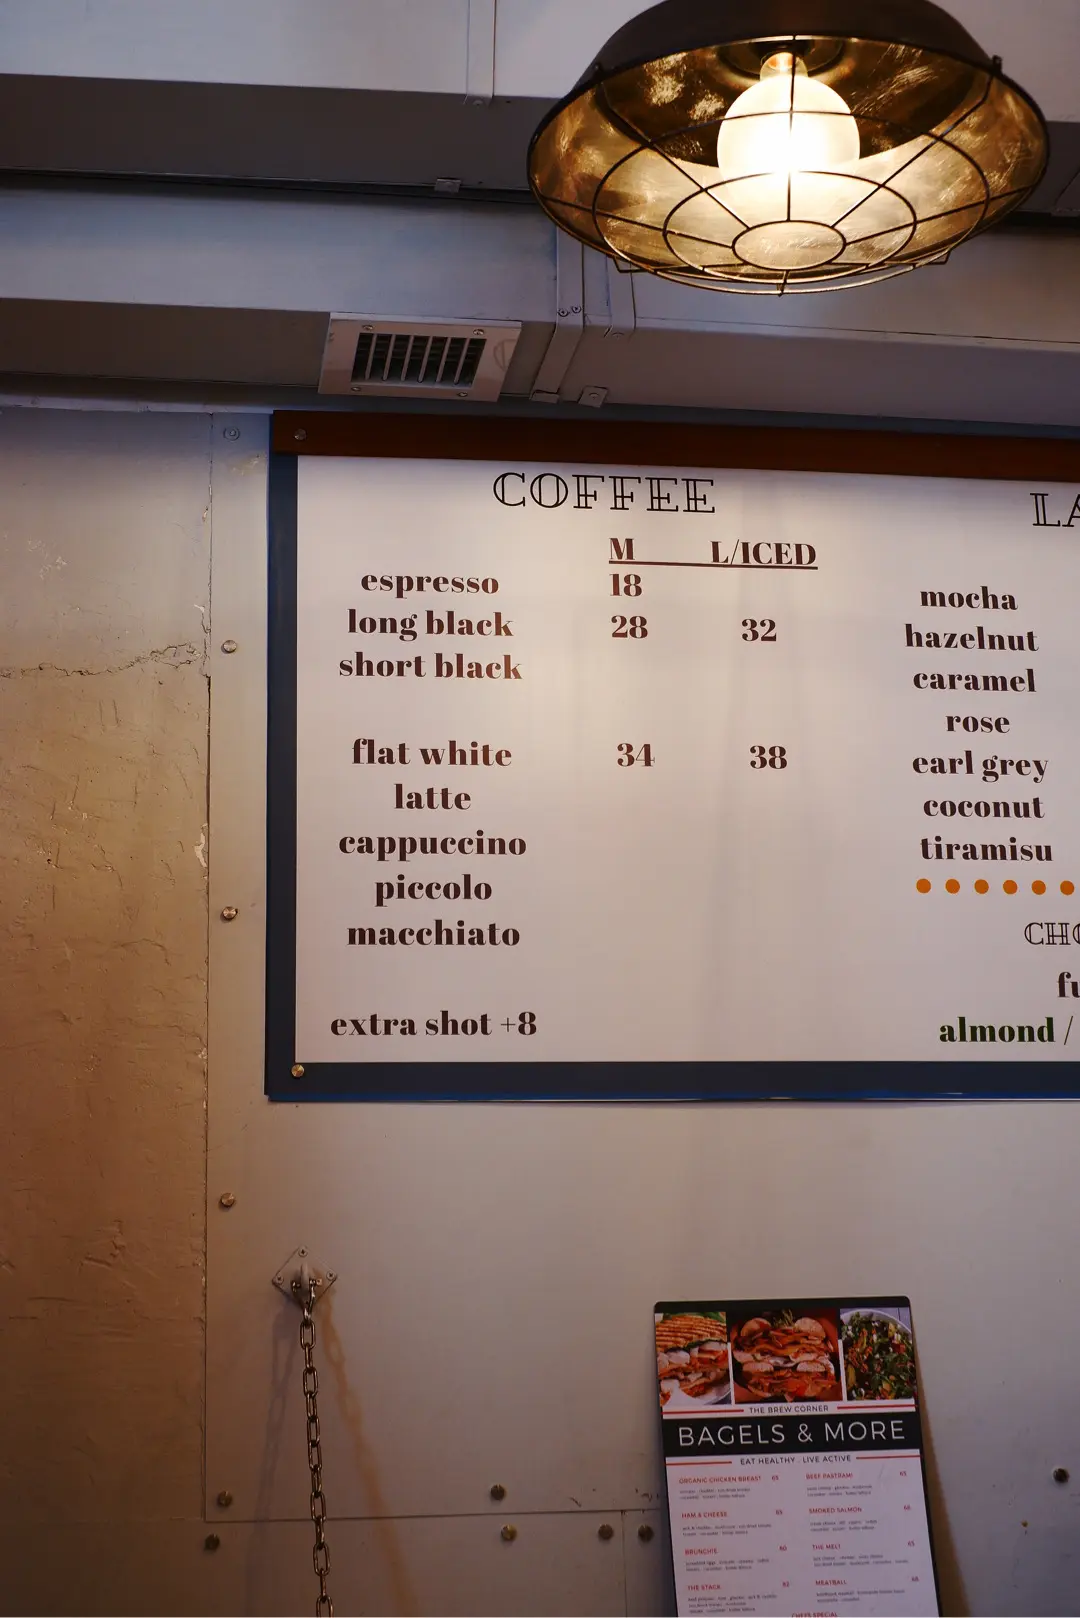 COFFEE
M L/ICED
espresso 18
long black 28 32
short black
flat white 34 38
latte
cappuccino
piccolo
macchiato
extra shot +8
LA
mocha
hazelnut
caramel
rose
earl grey
coconut
tiramisu
CHO
fu
almond /
THE BREW CORNER
BAGELS & MORE
EAT HEALTHY . LIVE ACTIVE
ORGANIC CHICKEN BREAST 65
HAM & CHEESE
BRUNCHIE 60
THE STACK 82
BEEF PASTRAMI 65
SMOKED SALMON 68
THE MELT
MEATBALL
CHEFS SPECIAL